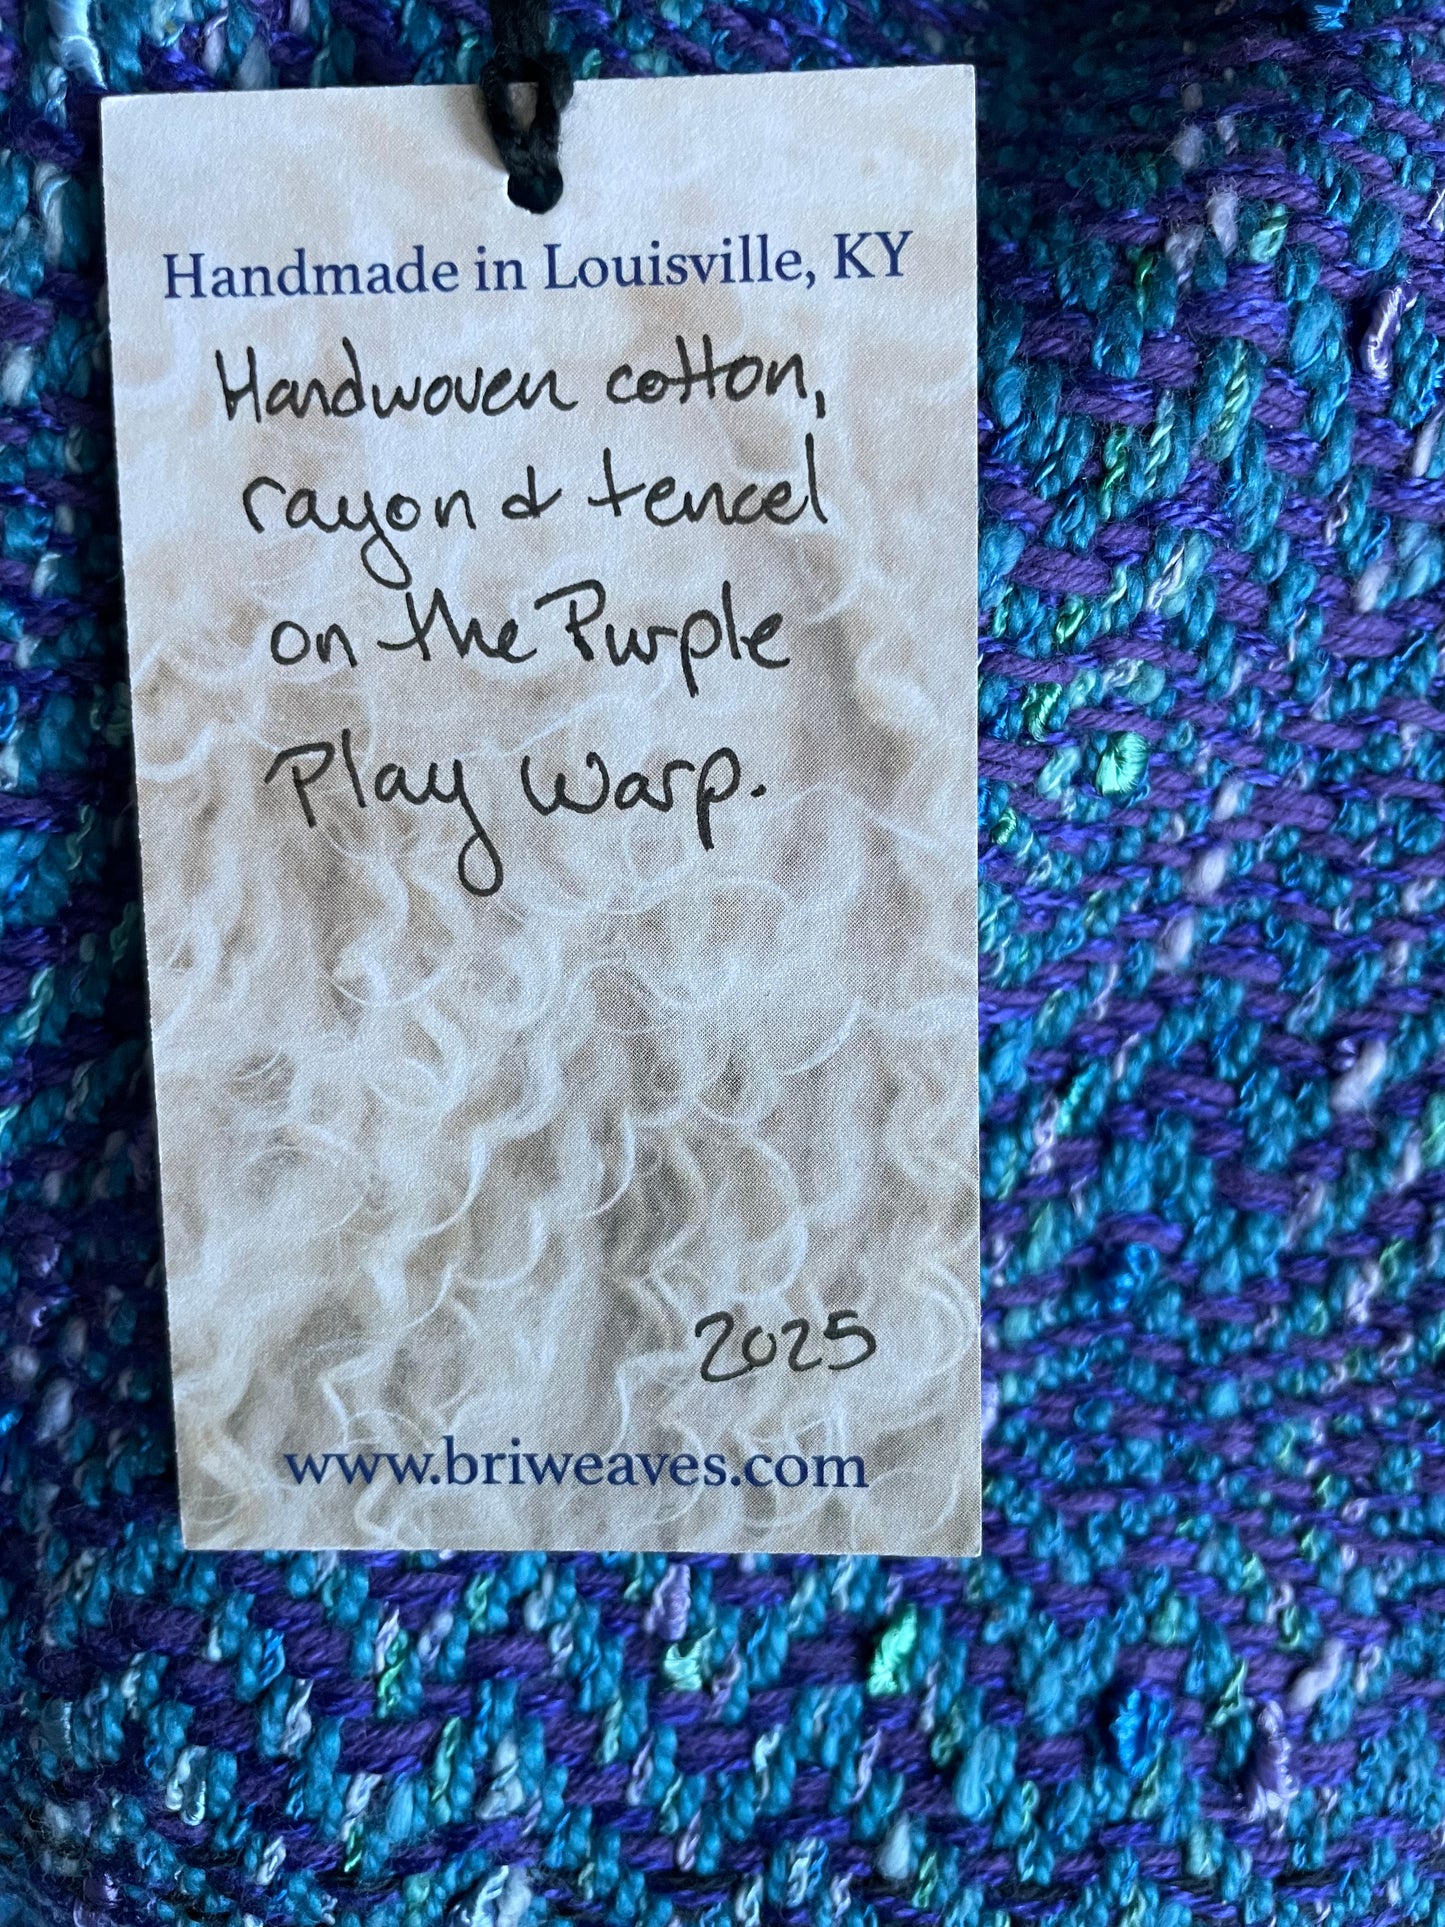 Handmade in Louisville, KY
Handwoven cotton,
rayon & tencel
on the Purple
Play Warp.
2025
www.briweaves.com